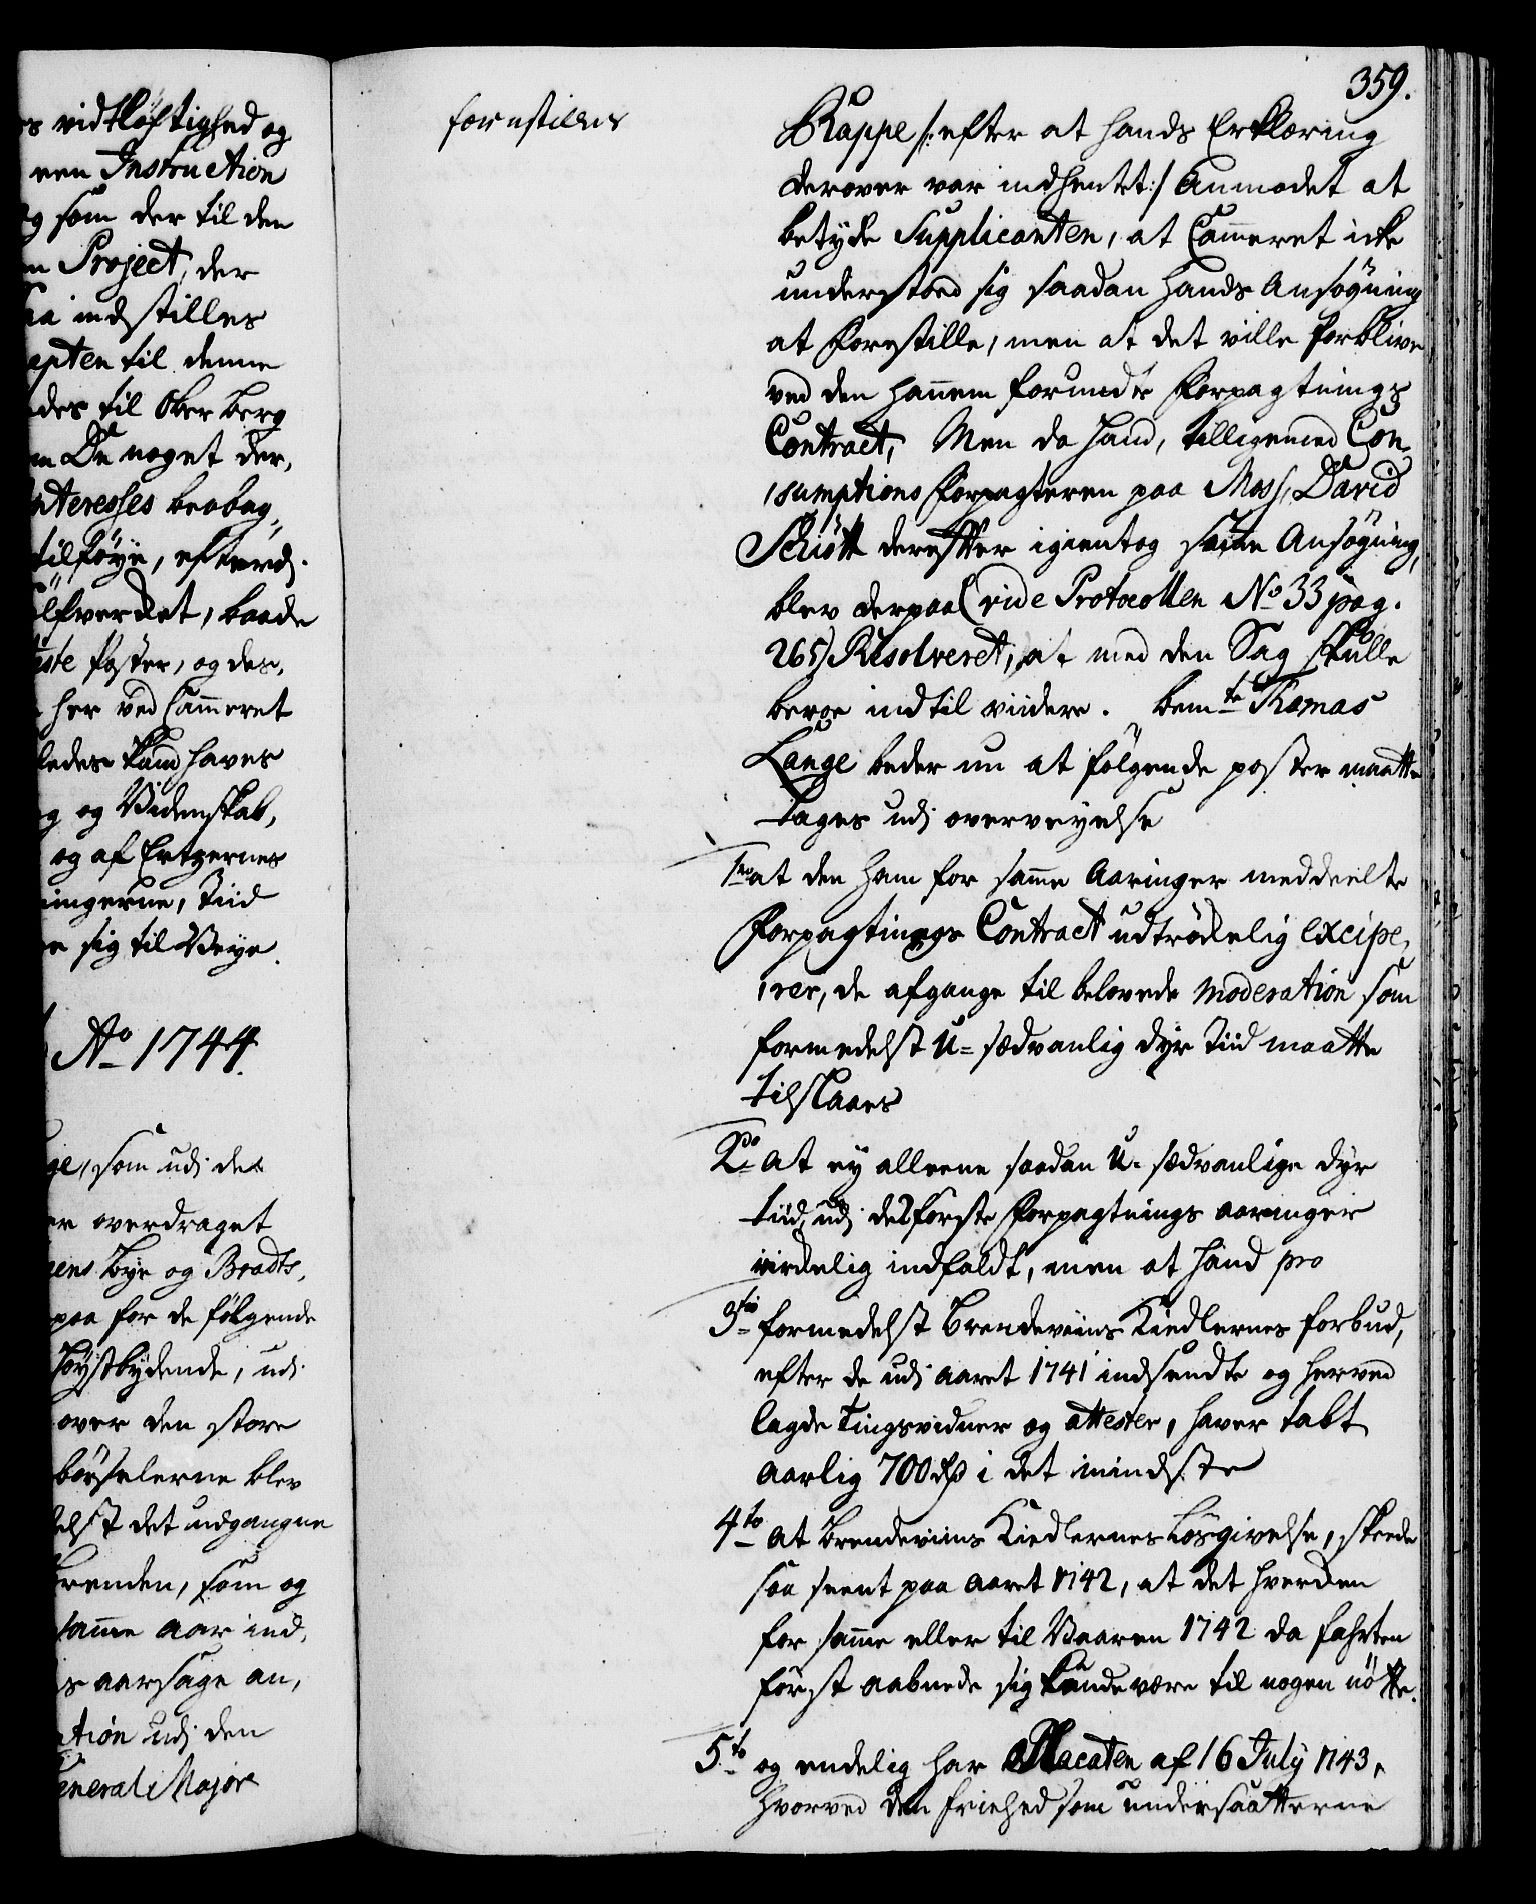 s vidtløftighed og
een Instruction
g som der til den
m Project, der
aa indstilles
epten til denne
des til Ober Berg
m De noget der,
nteresses beobag,,
tilføye, efterdi
elfverket, baade
iste Poster, og des,
her ved Cammeret
ledes kand haves
g og Videnskab,
og af Ertzernes
ningerne, Tiid
e sig til Veye.
Ao 1744.
ge, som udi det
er overdraget
gens Bye og Bradts,
paa for de følgende
høystbydende, udi
over den store
børselerne blev
elst det udgangne
brenden, som og
samme Aar ind,
is aarsage an,
ation udi den
General Major
forestilles
359.
Kappe /: efter at hands Erklæring
derover var indhentet :/ Anmodet at
betyde Supplicanten, at Cammeret icke
understoed sig saadan hands Ansøgning
at forestille, men at det ville forblive
ved den hannem forundte Forpagtnings
Contract, Men da hand, tilligemed Con,
sumptions Forpagteren paa Moss, David
Schiøtt derefter igientog sin Ansøgning,
blev derpaa (vide Protocollen No 33 pag.
265) Resolveret, at med den Sag skulle
beroe indtil viidere. bemte Thomas
Lange beder nu at følgende poster maatte
tages udi overveyelse
1mo at den ham for samme Aaringer meddeelte
Forpagtnings Contract udtrøkelig excipe,
rer, de afgange til belovede moderation som
formedelst U-sædvanlig dyr Tiid maatte
tilslaaes
2do at ey alleene saadan U-sædvanlige dyr
tiid, udi de 2 første Forpagtnings aaringer
virkelig indfaldt, men at hand pro
3tio formedelst Brendeviins Kiedlernes forbud,
efter de udi Aaret 1741 indsendte og herved
lagde Tingsvidner og attester, haver tabt
Aarlig 700 rdr i det mindste
4to at Brendeviins Kiedlernes Løsgivelse, skeede
saa seent paa Aaret 1742, at det hverken
for samme eller til Vaaren 1742 da farten
først aabnede sig kunde være til nogen nøtte.
5to og endelig har Placaten af 16 July 1743,
hvorved den friehed som undersaatterne